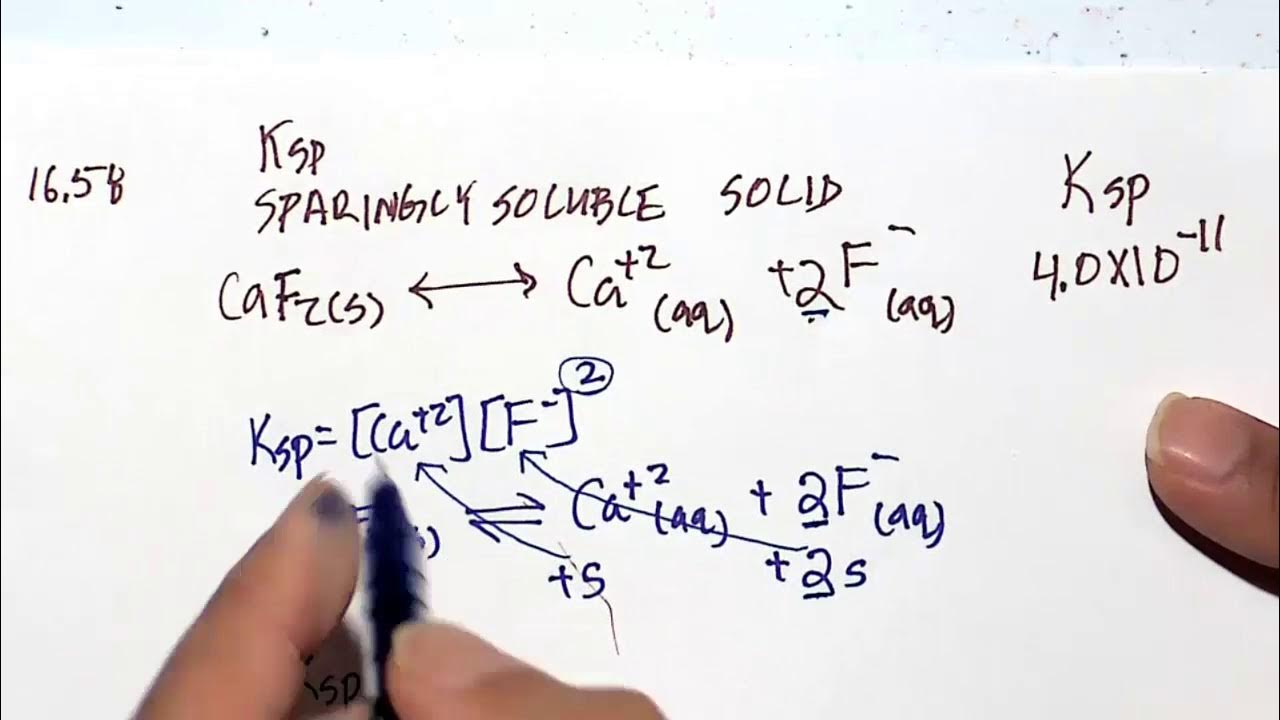 16.58
Ksp
SPARINGLY SOLUBLE SOLID
Ksp
4.0X10⁻¹¹
CaF₂(s) ⟷ Ca⁺²(aq) +2F⁻(aq)
Ksp=[Ca⁺²][F⁻]²
⇌ Ca⁺²(aq) + 2F⁻(aq)
+S +2s
Ksp